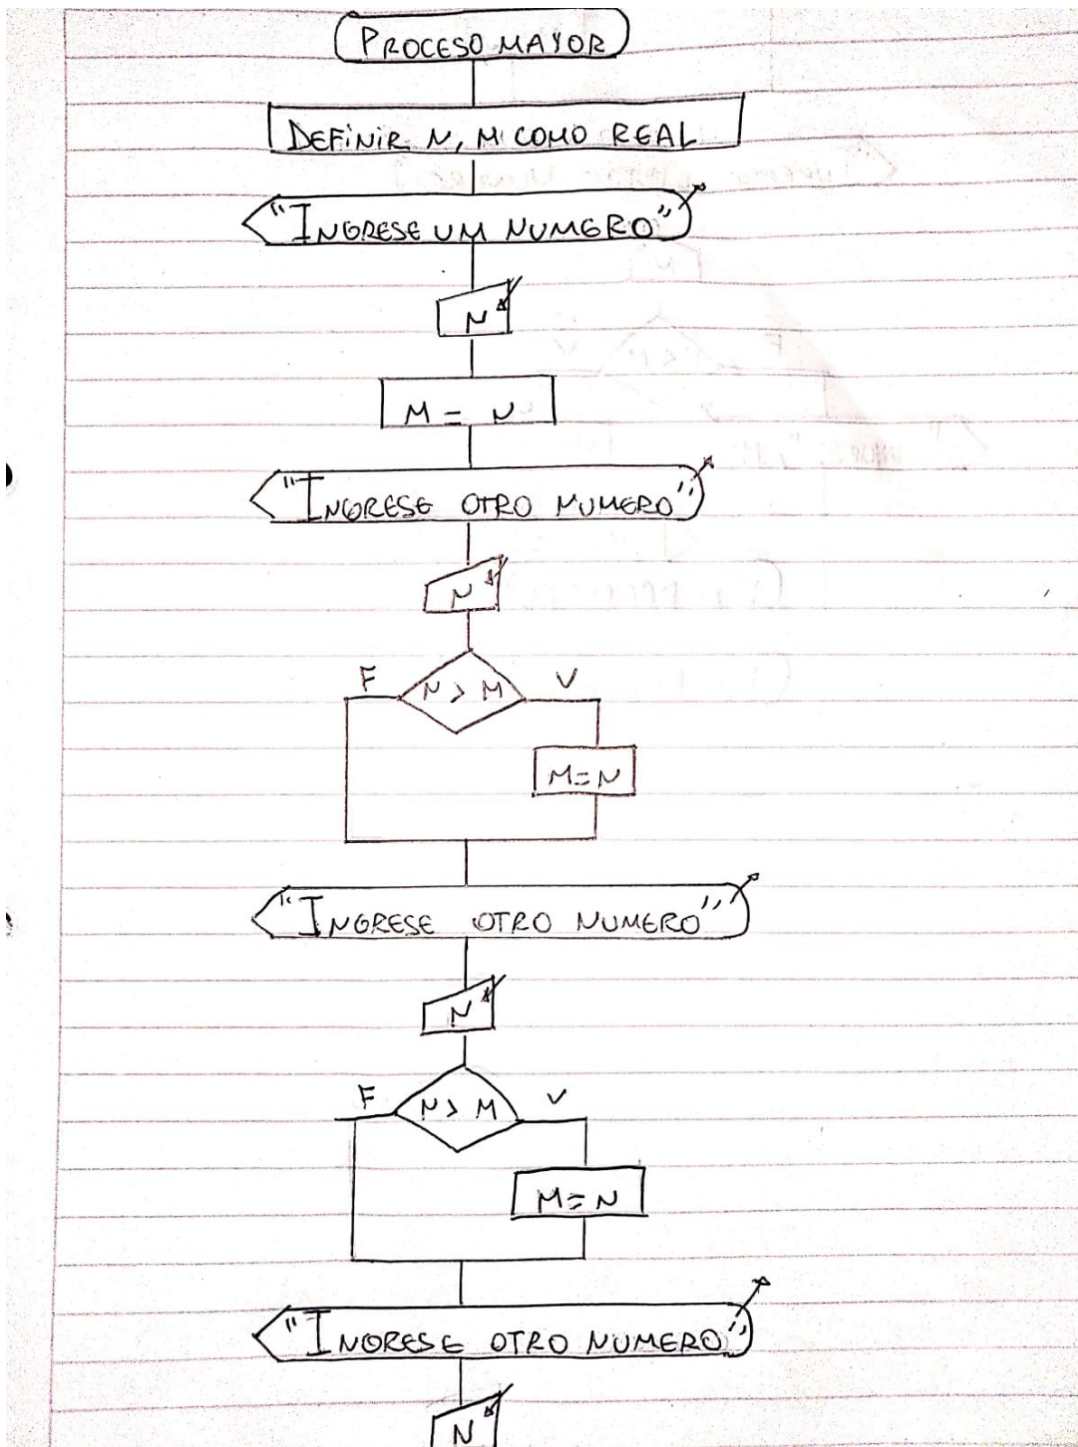 PROCESO MAYOR
DEFINIR N, M COMO REAL
"INGRESE UM NUMERO"
N
M = N
"INGRESE OTRO NUMERO"
N
F N > M V
M = N
"INGRESE OTRO NUMERO"
N
F N > M V
M = N
"INGRESE OTRO NUMERO"
N